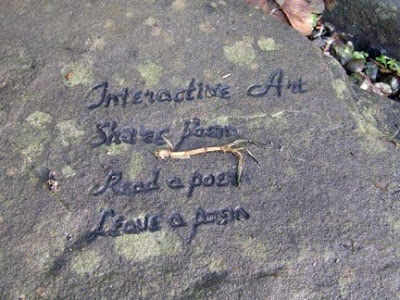 Interactive Art
Shares poem
Read a poem
Leave a poem